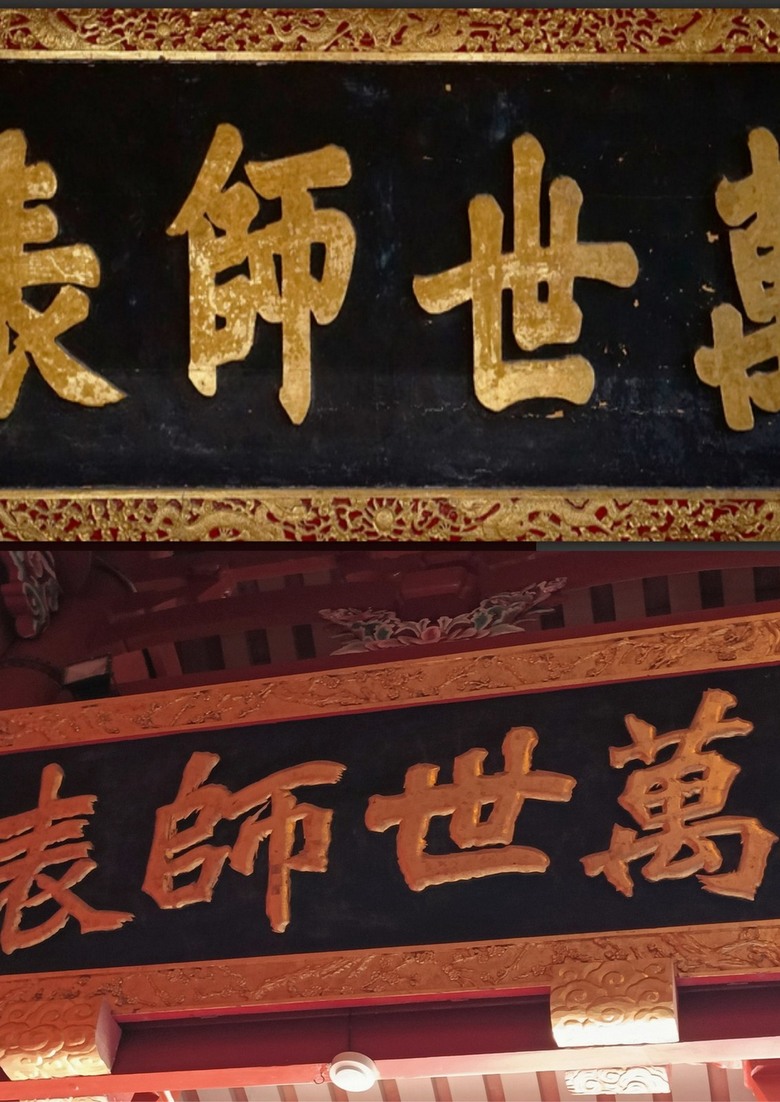 萬世師表
萬世師表